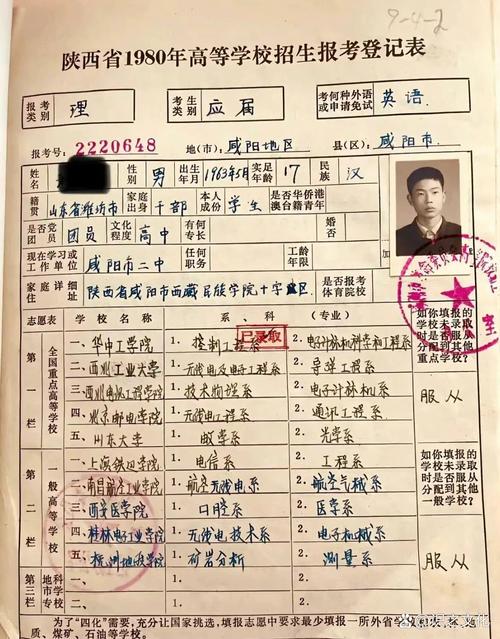 9-4-2
陕西省1980年高等学校招生报考登记表
报考类别 理 考生类别 应届 考何种外语或申请免试 英语
报考号: 2220648 地(市): 咸阳地区 县(区): 咸阳市
姓名 性别 男 出生年月 1963年5月 实足年龄 17 民族 汉
籍贯 山东省潍坊市 家庭出身 干部 本人成份 学生 是否华侨港澳台籍青年
是否党团员 团员 文化程度 高中 有何专长
现在学习工作单位 咸阳市二中 任何职务 工龄
家庭住址详细 陕西省咸阳市西藏民族学院十字 区 是否报考体育院校
志愿表 学校名称 系、科 (专业) 如你填报的学校未录取时是否服从分配到其他重点学校
已录取
第一栏 全国重点高等学校
一、华中工学院 1.控制工程系 2.电子计标机科学和工程系
二、西北工业大学 1.无线电及电子工程系 2.导弹工程系
三、西北电讯工程学院 1.技术物理系 2.电子计标机系 服从
四、北京邮电学院 1.无线电工程系 2.通讯工程系
五、山东大学 1.数学系 2.光学系
第二栏 一般高等学校 如你填报的学校未录取时是否服从分配到其他一般学校
一、上海铁道学院 1.电信系 2.工程系
二、南昌航空工业学院 1.航空无线电系 2.航空气械系
三、西安医学院 1.口腔系 2.医学系
四、桂林电子工业学院 1.无线电技术系 2.电子机械系
五、杭州地政学院 1.矿岩分析 2.测量系 服从
第三栏 地市专科学校 一、 1. 2.
二、 1. 2.
为了“四化”需要,充分让国家挑选,填报志愿中要求最少填报一所外省
质、煤矿、石油等学校。